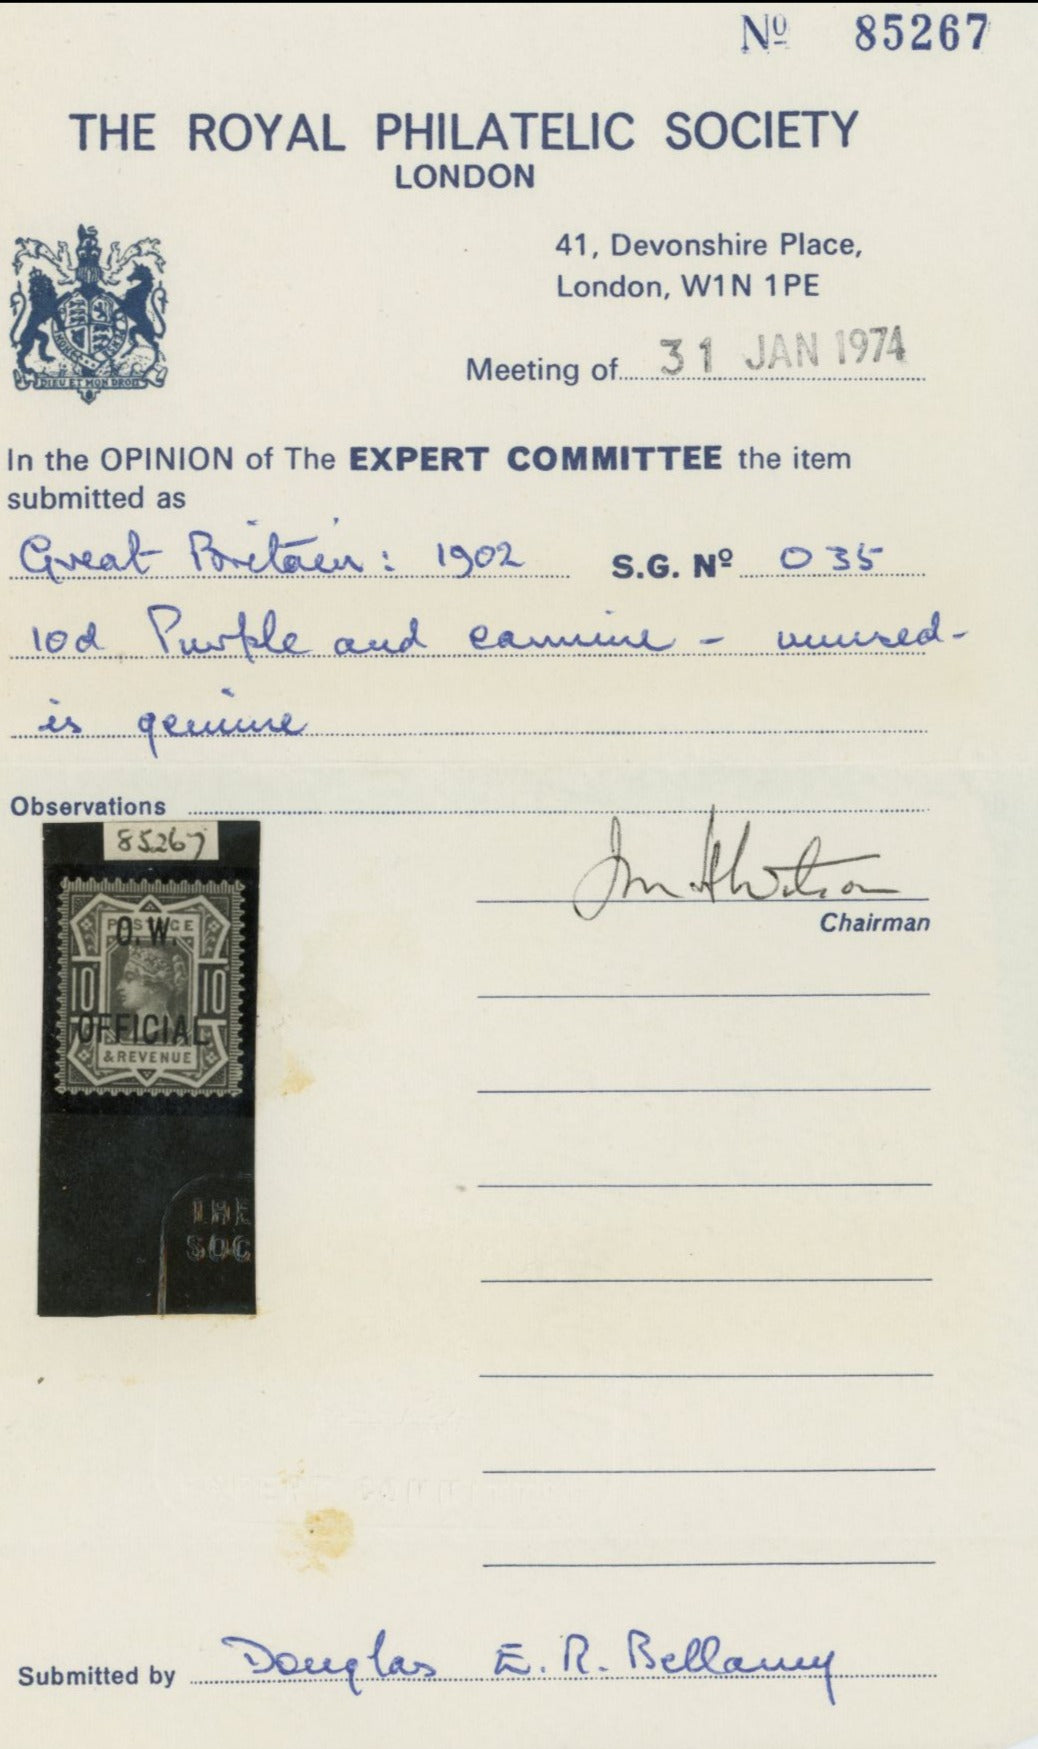 Nº 85267
THE ROYAL PHILATELIC SOCIETY
LONDON
41, Devonshire Place,
London, W1N 1PE
DIEU ET MON DROIT
Meeting of 31 JAN 1974
In the OPINION of The EXPERT COMMITTEE the item
submitted as
Great Britain: 1902 S.G. Nº O 35
10d Purple and carmine - unused -
is genuine
Observations
85267
POSTAGE
O.W.
10 10
OFFICIAL
& REVENUE
THE
SOC
Chairman
Submitted by Douglas E. R. Bellamy